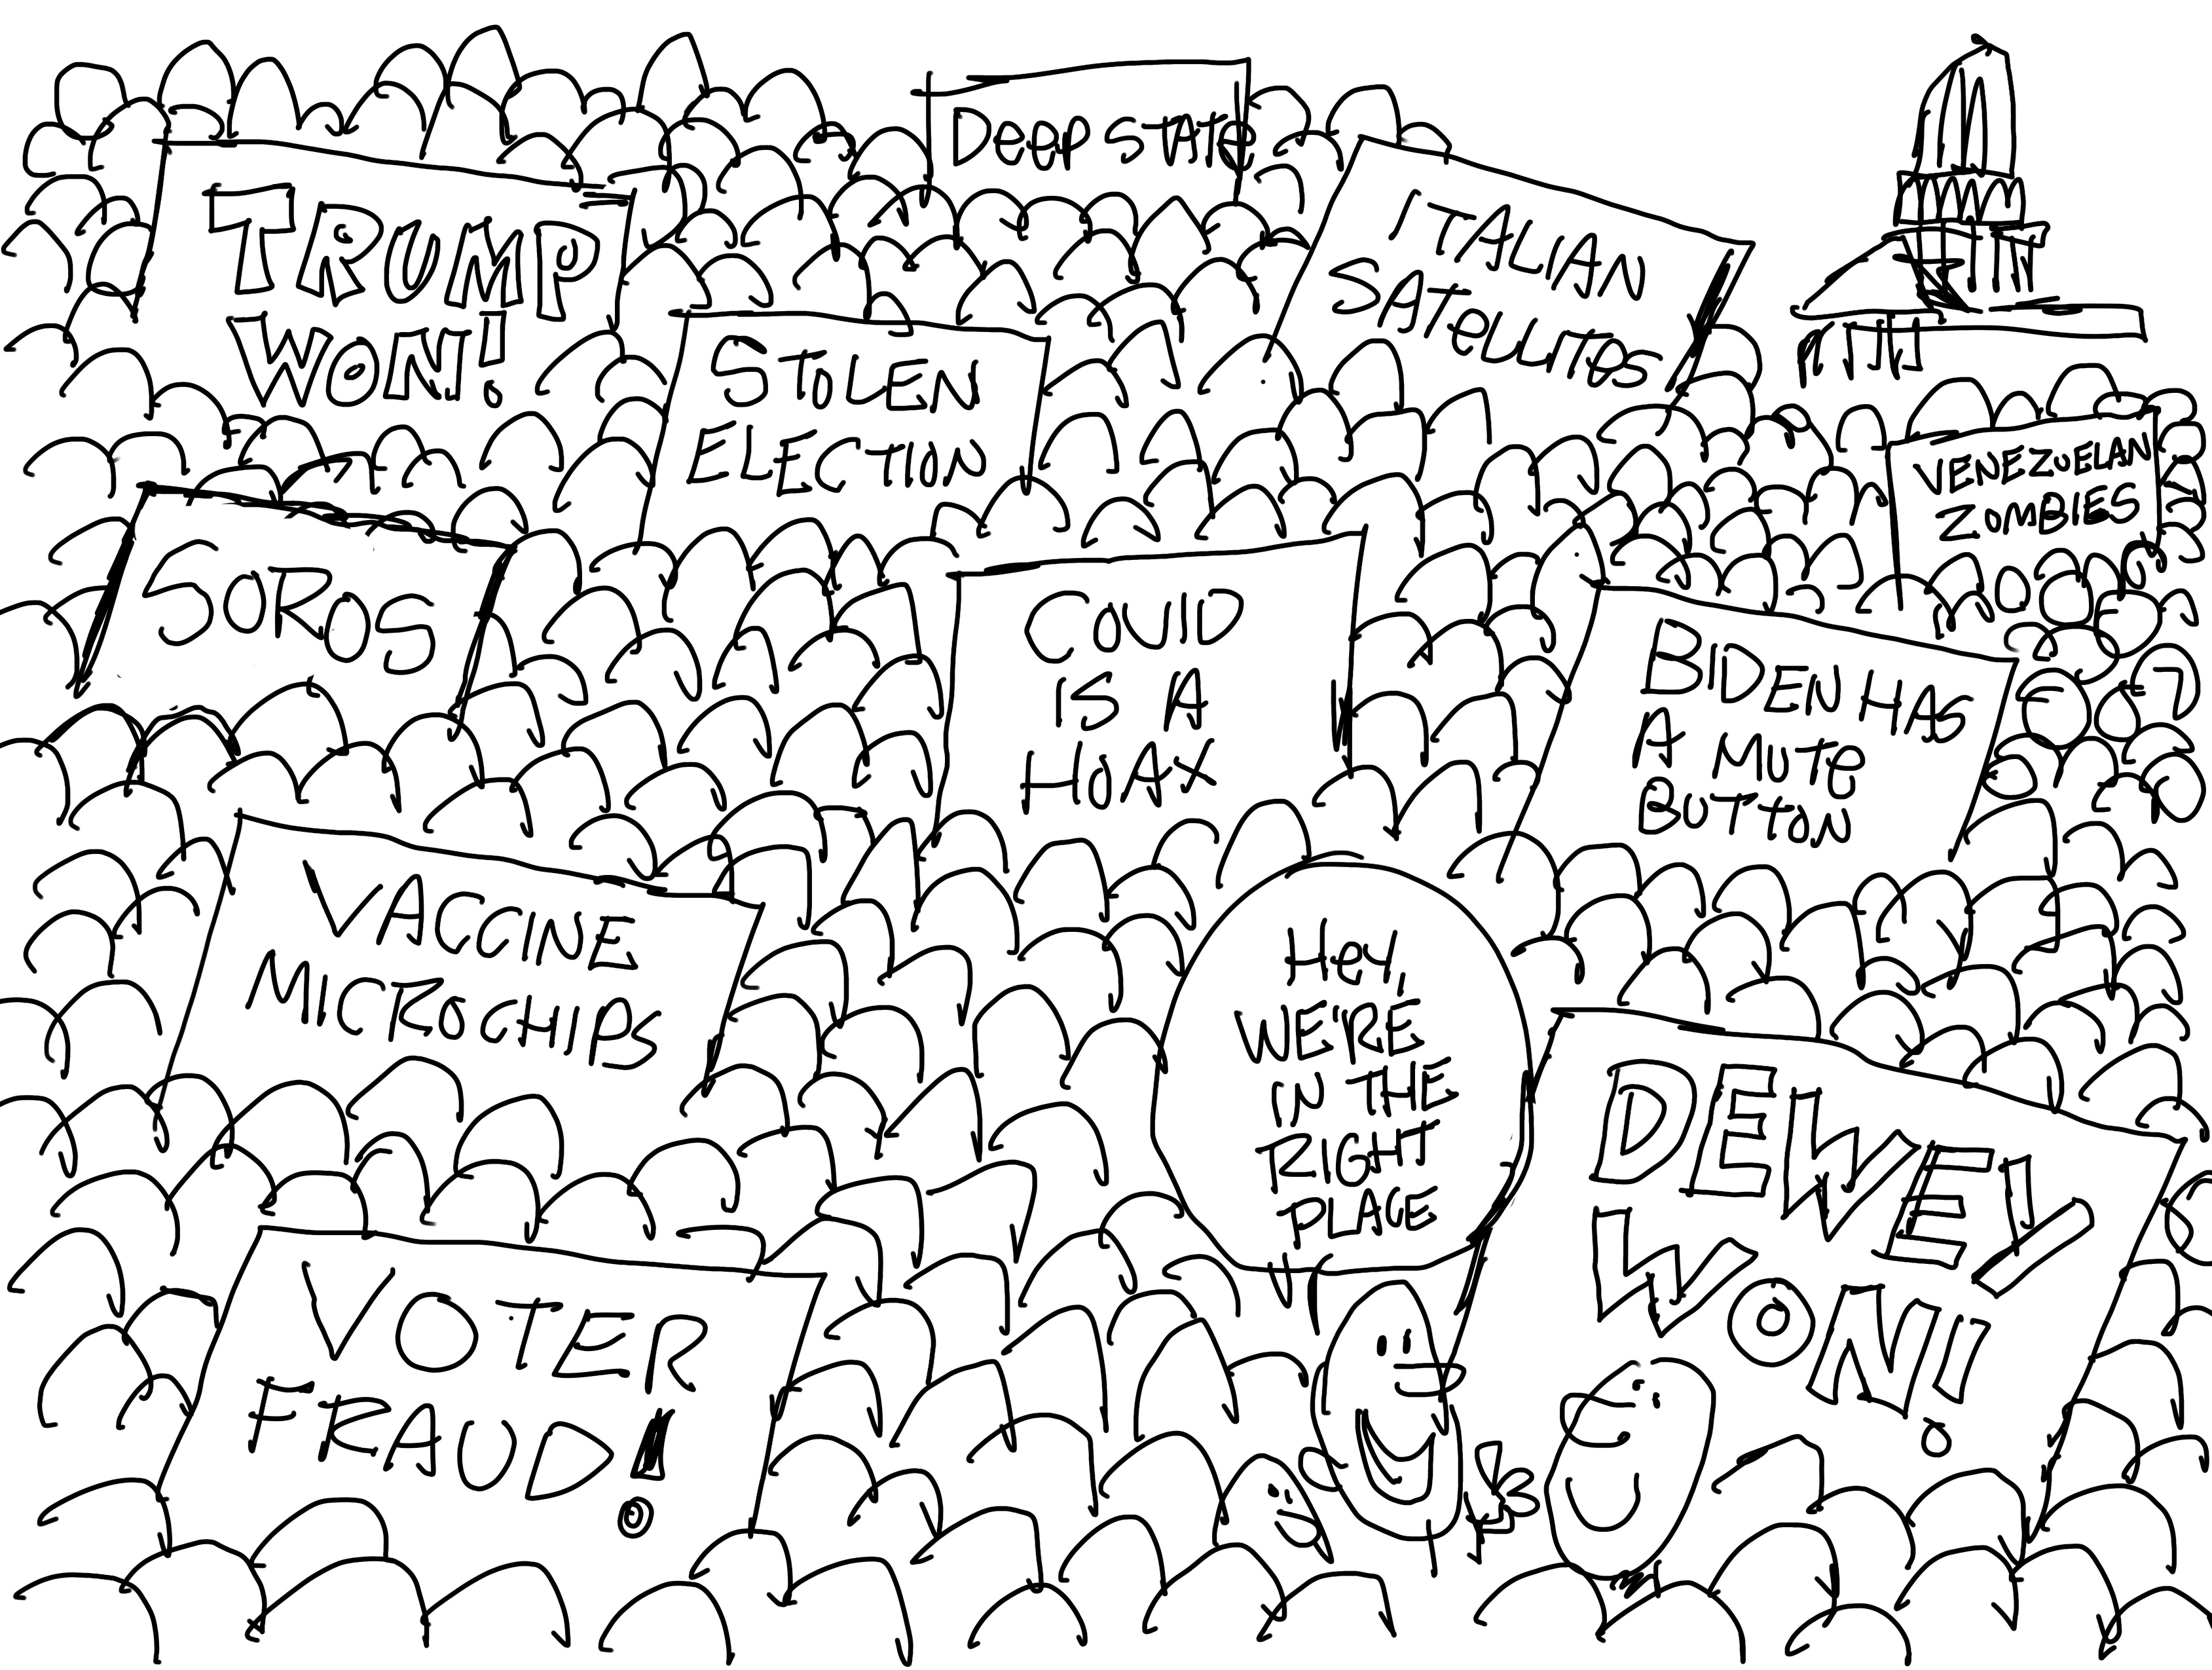 Deep STATE
TRUMP
WON!
ITALIAN
SATELLITES
STOLEN
ELECTION
VENEZUELAN
ZOMBIES
SOROS
COVID
IS A
HOAX
BIDEN HAS
A MUTE
BUTTON
VACCINE
MICROCHIPS
Hey,
WE'RE
IN THE
RIGHT
PLACE
DEWEY
WON!!
VOTER
FRAUD!